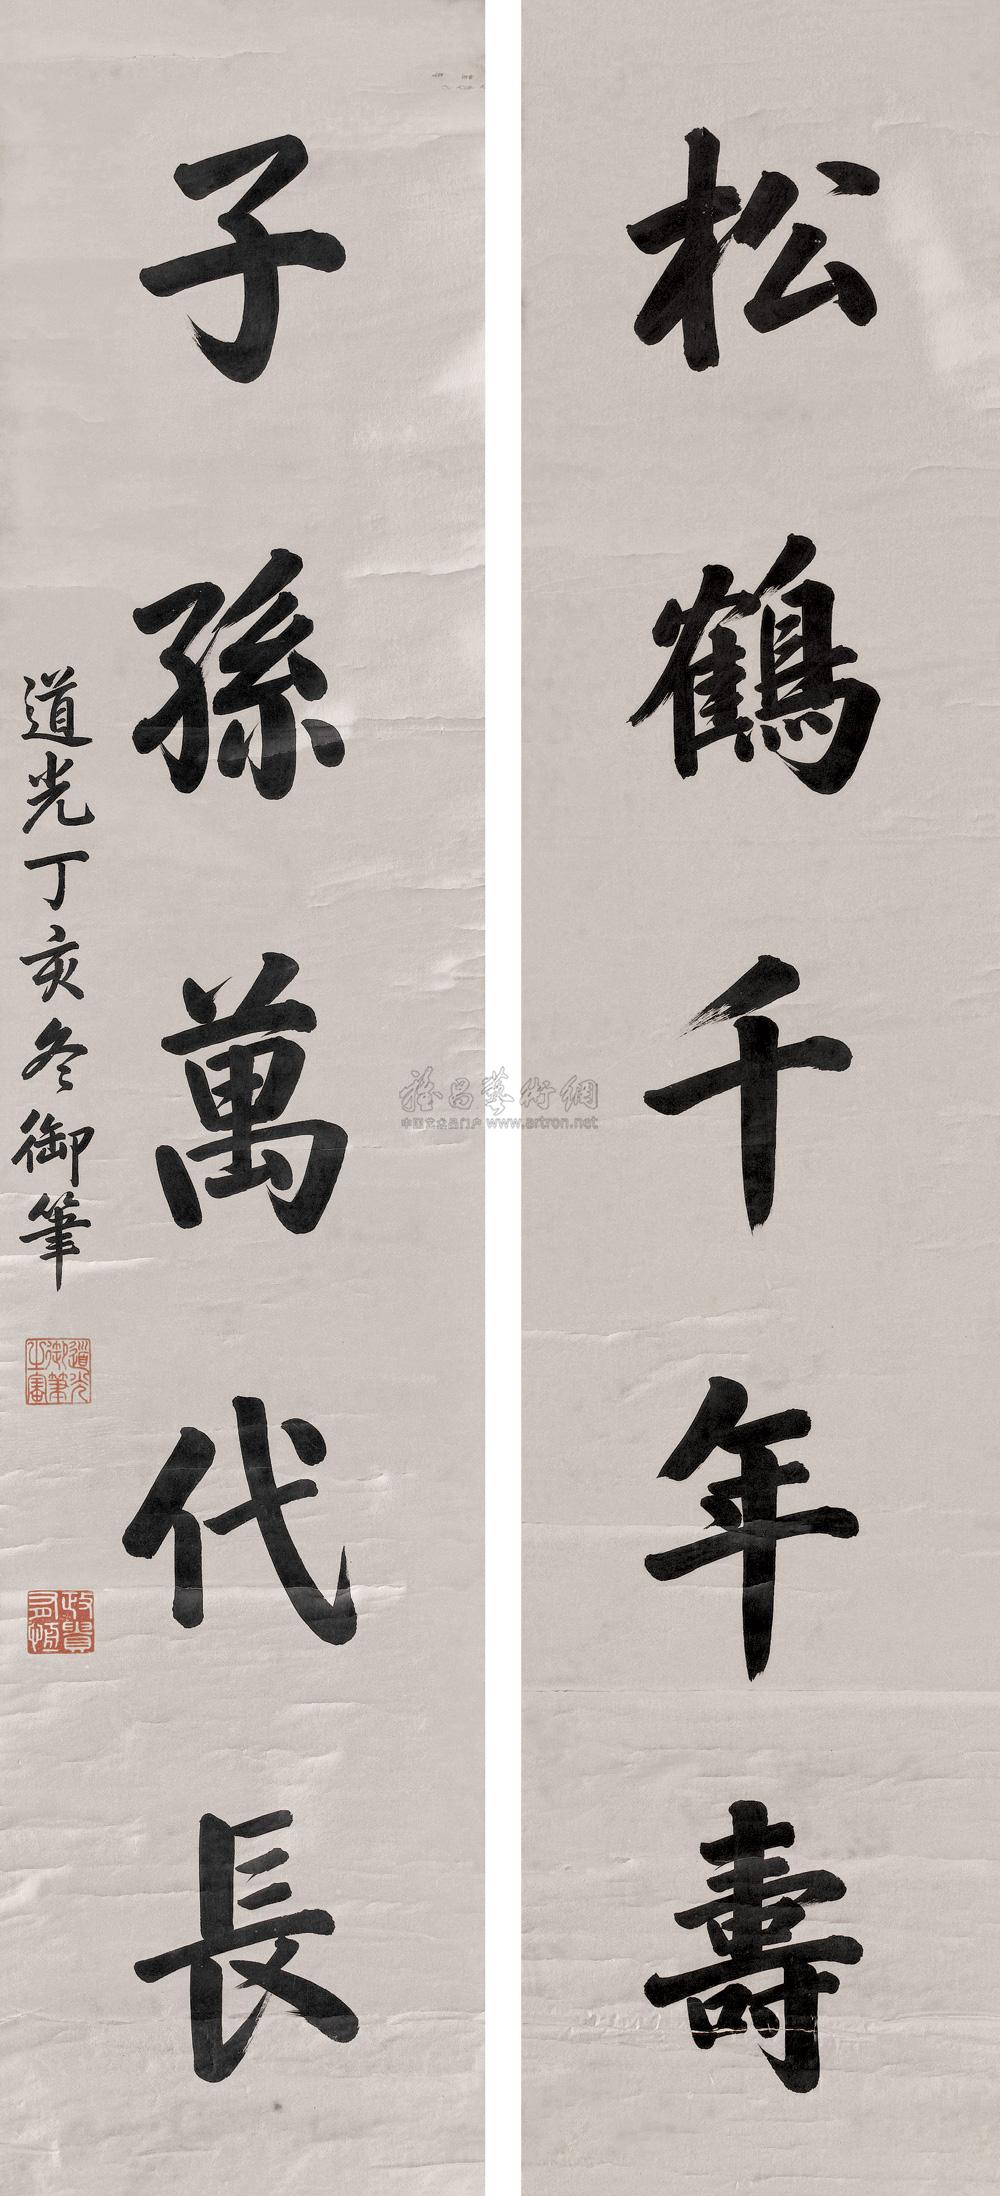 松鶴千年壽
子孫萬代長
道光丁亥冬御筆
道光御筆之寶
政貴有恆
雅昌藝術網
中国艺术品门户 www.artron.net